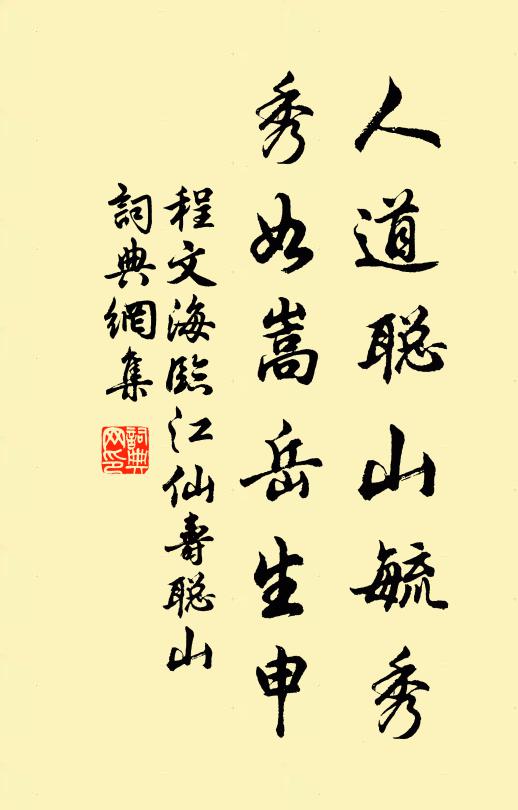 人道聪山毓秀
秀如嵩岳生申
程文海臨江仙壽聪山
詞典網集
詞典
网印